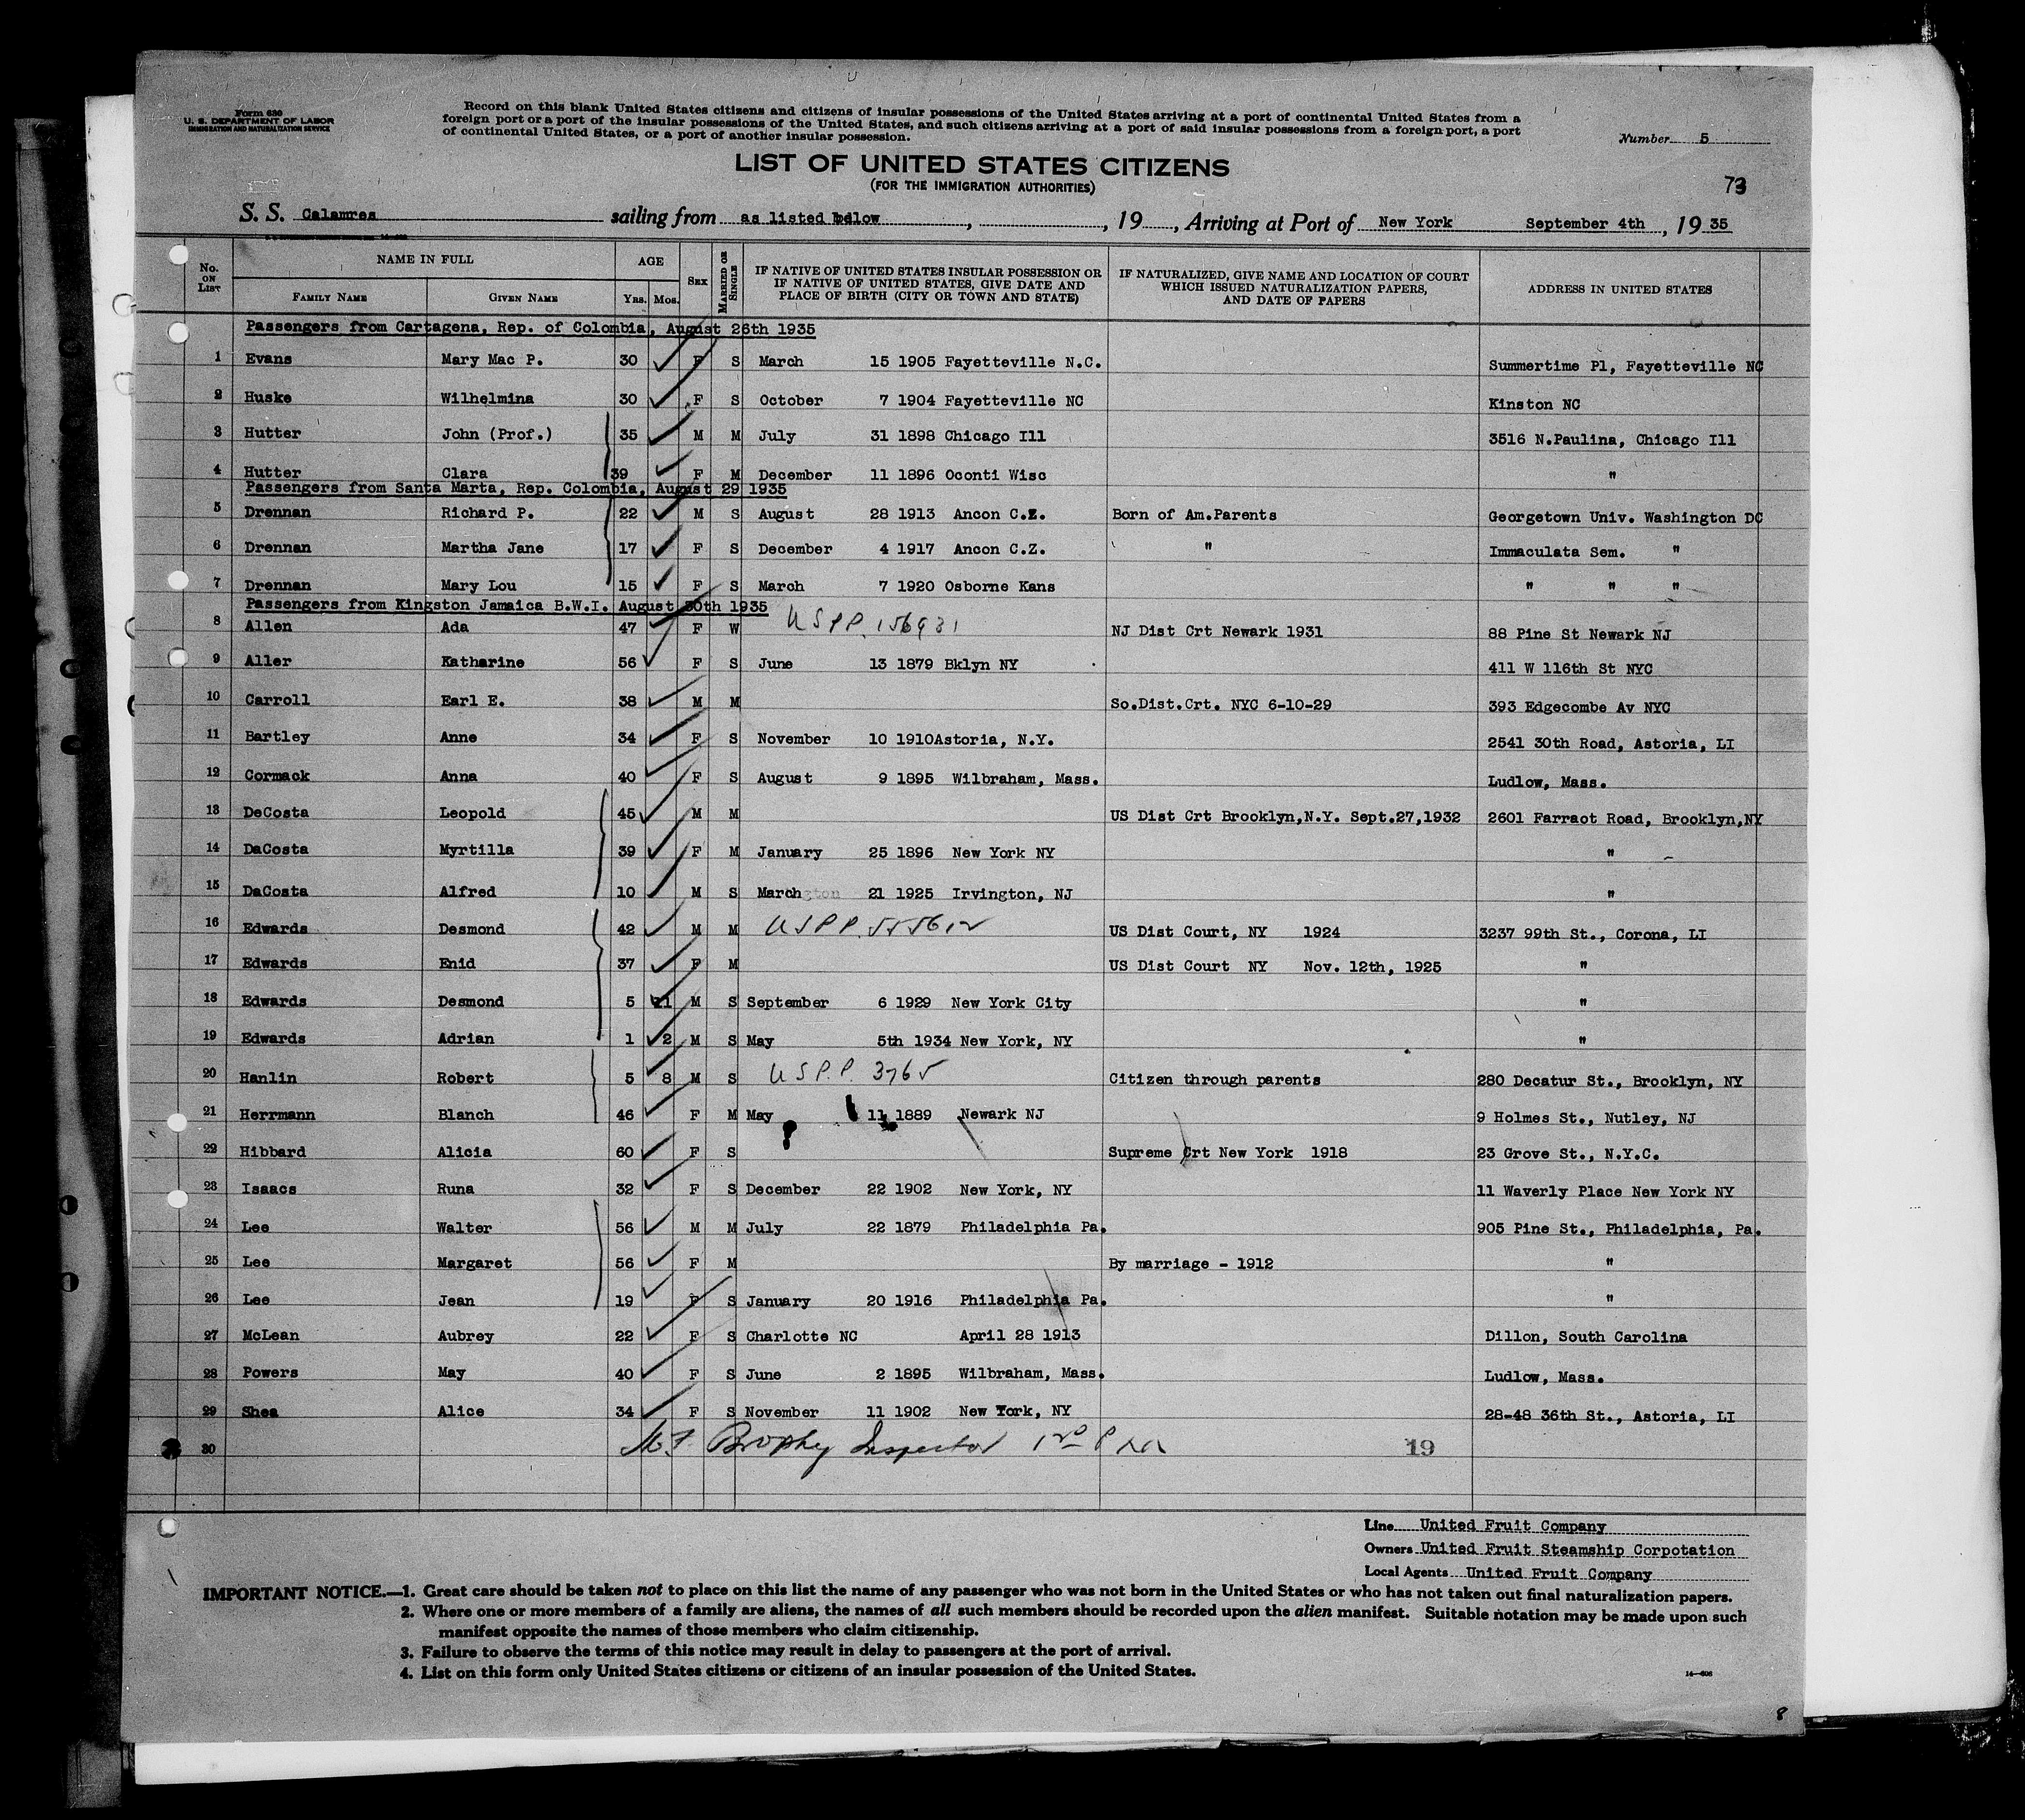 Form 630
U. S. DEPARTMENT OF LABOR
IMMIGRATION AND NATURALIZATION SERVICE
Record on this blank United States citizens and citizens of insular possessions of the United States arriving at a port of continental United States from a
foreign port or a port of the insular possessions of the United States, and such citizens arriving at a port of said insular possessions from a foreign port, a port
of continental United States, or a port of another insular possession.
Number 5
LIST OF UNITED STATES CITIZENS
(FOR THE IMMIGRATION AUTHORITIES)
73
S. S. Calamres sailing from as listed bdlow , , 19 , Arriving at Port of New York September 4th , 19 35
No. ON LIST NAME IN FULL FAMILY NAME GIVEN NAME AGE Yrs. Mos. SEX MARRIED OR SINGLE IF NATIVE OF UNITED STATES INSULAR POSSESSION OR IF NATIVE OF UNITED STATES, GIVE DATE AND PLACE OF BIRTH (CITY OR TOWN AND STATE) IF NATURALIZED, GIVE NAME AND LOCATION OF COURT WHICH ISSUED NATURALIZATION PAPERS, AND DATE OF PAPERS ADDRESS IN UNITED STATES
Passengers from Cartagena, Rep. of Colombia, August 26th 1935
1 Evans Mary Mac P. 30 F S March 15 1905 Fayetteville N.C. Summertime Pl, Fayetteville NC
2 Huske Wilhelmina 30 F S October 7 1904 Fayetteville NC Kinston NC
3 Hutter John (Prof.) 35 M M July 31 1898 Chicago Ill 3516 N.Paulina, Chicago Ill
4 Hutter Clara 39 F M December 11 1896 Oconti Wisc "
Passengers from Santa Marta, Rep. Colombia, August 29 1935
5 Drennan Richard P. 22 M S August 28 1913 Ancon C.Z. Born of Am.Parents Georgetown Univ. Washington DC
6 Drennan Martha Jane 17 F S December 4 1917 Ancon C.Z. " Immaculata Sem. "
7 Drennan Mary Lou 15 F S March 7 1920 Osborne Kans " " "
Passengers from Kingston Jamaica B.W.I. August 30th 1935
8 Allen Ada 47 F W USPP. 156931 NJ Dist Crt Newark 1931 88 Pine St Newark NJ
9 Aller Katharine 56 F S June 13 1879 Bklyn NY 411 W 116th St NYC
10 Carroll Earl E. 38 M M So.Dist.Crt. NYC 6-10-29 393 Edgecombe Av NYC
11 Bartley Anne 34 F S November 10 1910Astoria, N.Y. 2541 30th Road, Astoria, LI
12 Cormack Anna 40 F S August 9 1895 Wilbraham, Mass. Ludlow, Mass.
13 DeCosta Leopold 45 M M US Dist Crt Brooklyn,N.Y. Sept.27,1932 2601 Farraot Road, Brooklyn,NY
14 DaCosta Myrtilla 39 F M January 25 1896 New York NY "
15 DaCosta Alfred 10 M S March 21 1925 Irvington, NJ "
16 Edwards Desmond 42 M M USPP. 555612 US Dist Court, NY 1924 3237 99th St., Corona, LI
17 Edwards Enid 37 F M US Dist Court NY Nov. 12th, 1925 "
18 Edwards Desmond 5 11 M S September 6 1929 New York City "
19 Edwards Adrian 1 2 M S May 5th 1934 New York, NY "
20 Hanlin Robert 5 8 M S USP.P. 3765 Citizen through parents 280 Decatur St., Brooklyn, NY
21 Herrmann Blanch 46 F M May 11 1889 Newark NJ 9 Holmes St., Nutley, NJ
22 Hibbard Alicia 60 F S Supreme Crt New York 1918 23 Grove St., N.Y.C.
23 Isaacs Runa 32 F S December 22 1902 New York, NY 11 Waverly Place New York NY
24 Lee Walter 56 M M July 22 1879 Philadelphia Pa. 905 Pine St., Philadelphia, Pa.
25 Lee Margaret 56 F M By marriage - 1912 "
26 Lee Jean 19 F S January 20 1916 Philadelphia Pa. "
27 McLean Aubrey 22 F S Charlotte NC April 28 1913 Dillon, South Carolina
28 Powers May 40 F S June 2 1895 Wilbraham, Mass. Ludlow, Mass.
29 Shea Alice 34 F S November 11 1902 New York, NY 28-48 36th St., Astoria, LI
30 Brophy Inspector 19
Line United Fruit Company
Owners United Fruit Steamship Corpotation
Local Agents United Fruit Company
IMPORTANT NOTICE.—1. Great care should be taken not to place on this list the name of any passenger who was not born in the United States or who has not taken out final naturalization papers.
2. Where one or more members of a family are aliens, the names of all such members should be recorded upon the alien manifest. Suitable notation may be made upon such
manifest opposite the names of those members who claim citizenship.
3. Failure to observe the terms of this notice may result in delay to passengers at the port of arrival.
4. List on this form only United States citizens or citizens of an insular possession of the United States.
8